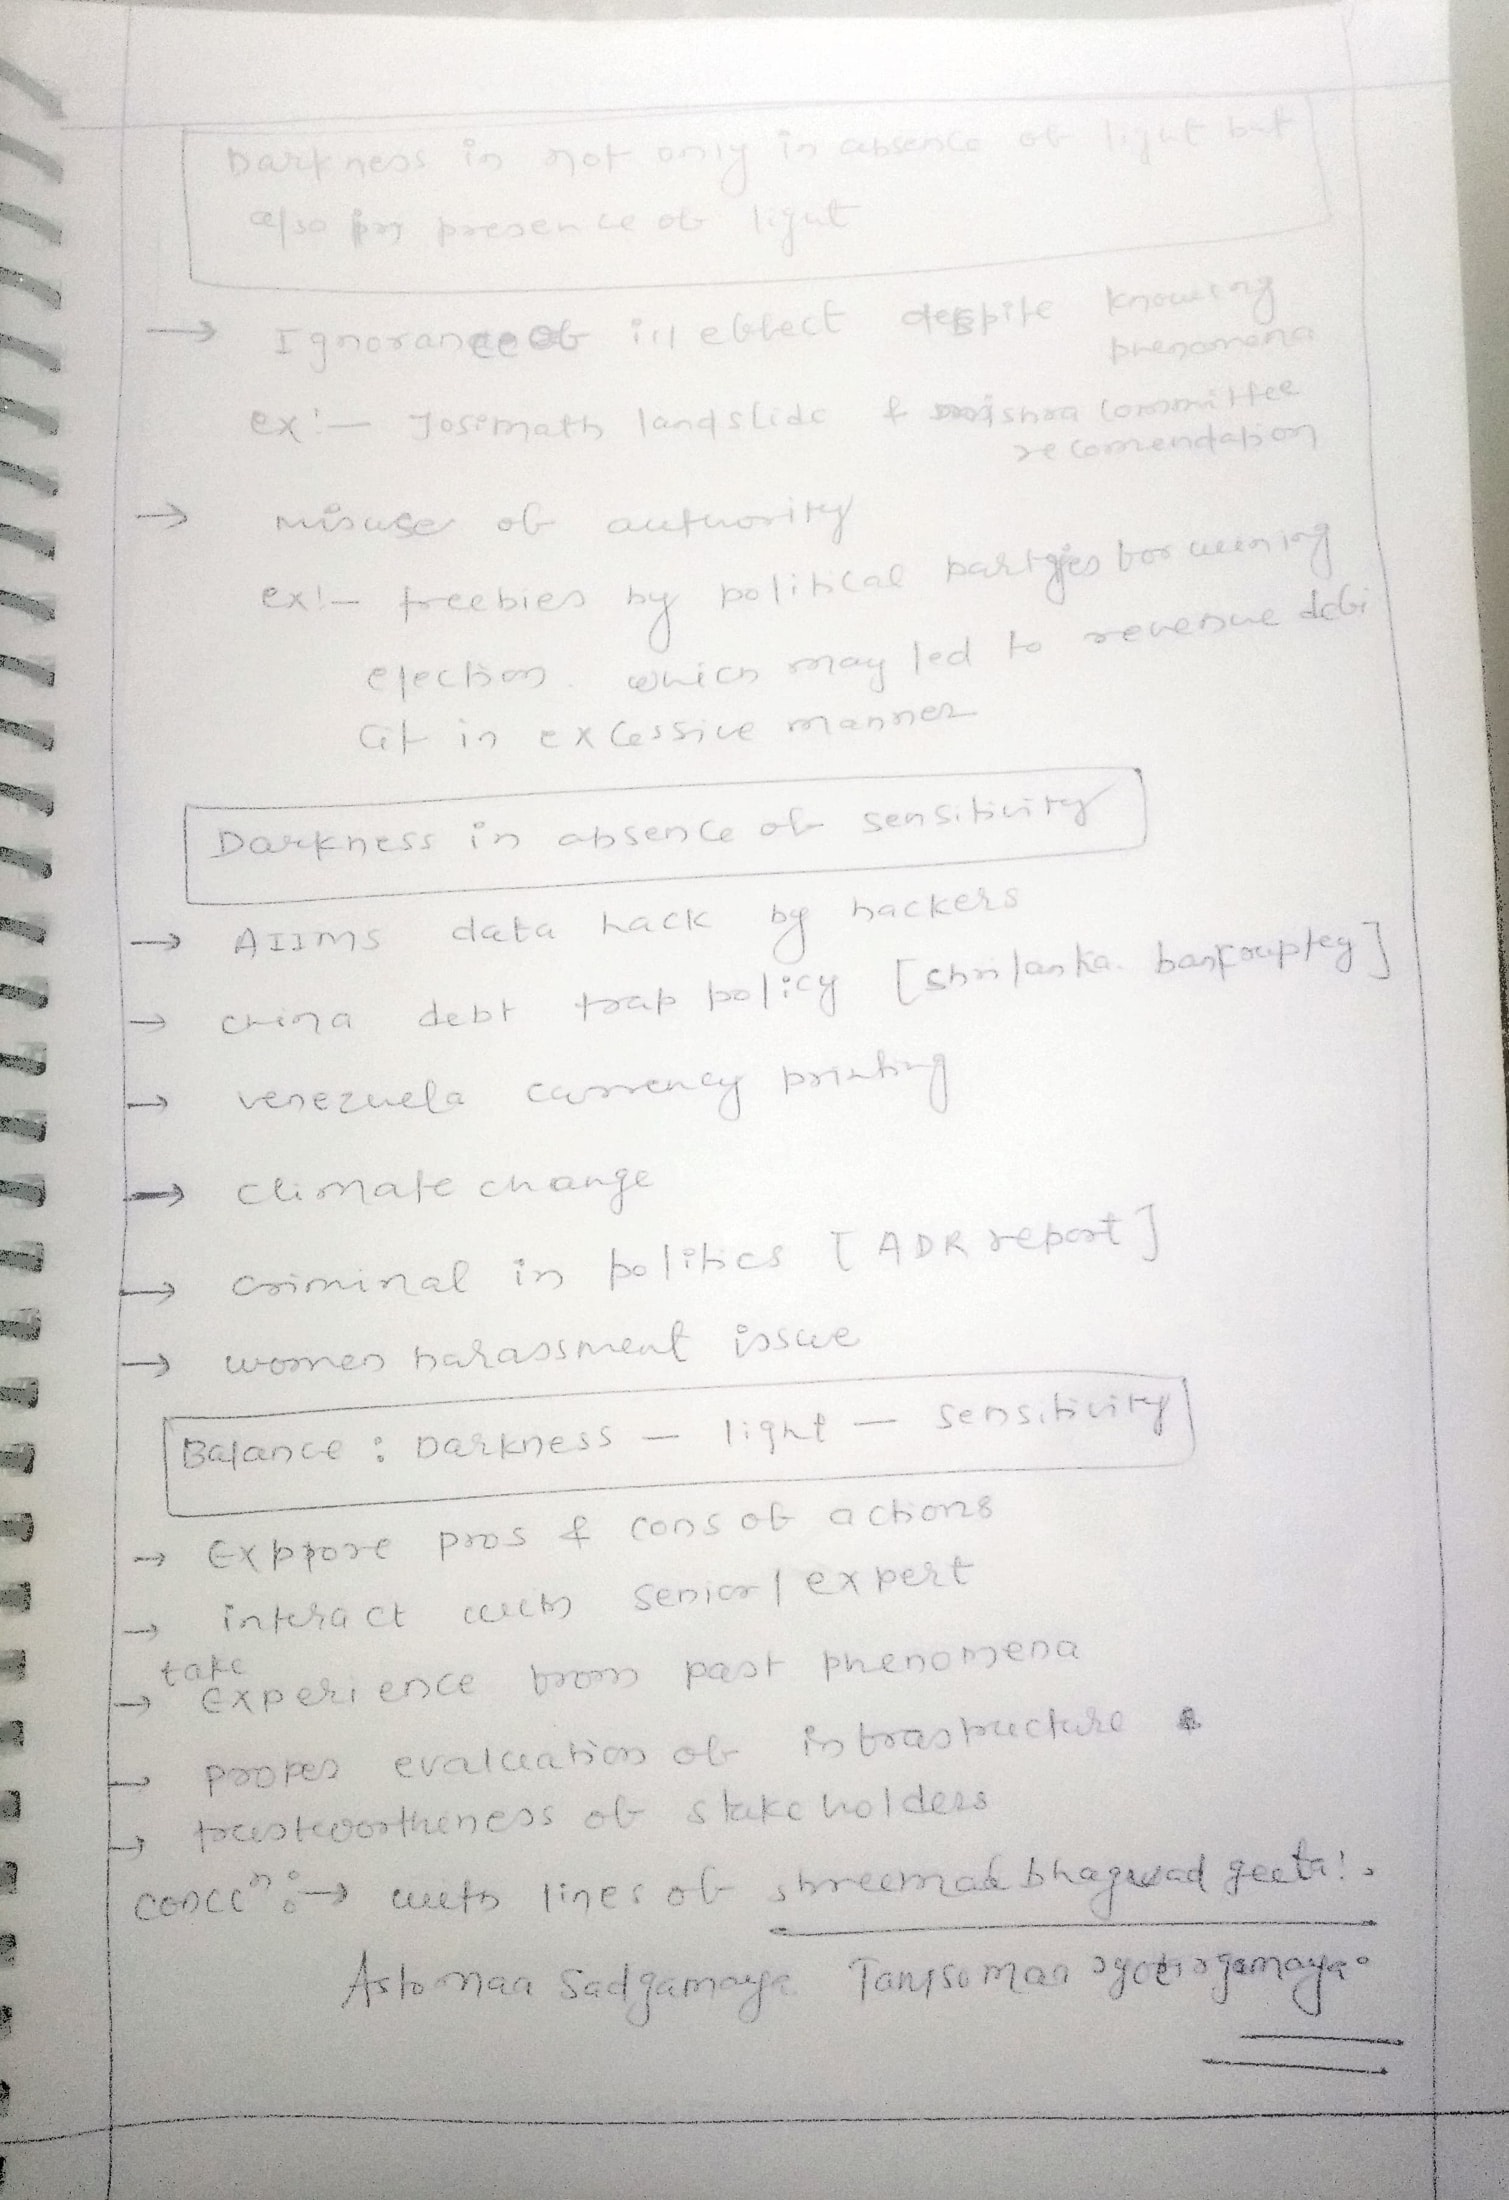 Darkness in not only in absence of light but
also in presence of light
→ Ignorance of ill effect despite knowing
phenomena
ex:- Josimath landslide & mishra committee
recomendation
→ misuse of authority
ex:- freebies by political parties for wining
election. which may led to revenue defi
cit in excessive manner
Darkness in absence of sensitivity
→ AIIMS data hack by hackers
→ china debt trap policy [Shrilanka bankruptcy]
→ venezuela currency printing
→ climate change
→ criminal in politics [ADR report]
→ women harassment issue
Balance : Darkness — light — sensitivity
→ Explore pros & cons of actions
→ interact with senior/expert
take
→ Experience from past phenomena
→ proper evaluation of infrastructure
→ trustwortheness of stakeholders
concn :→ with lines of shreemad bhagwad geeta!.
Astomaa Sadgamaya Tamsomaa jyotirgamaya.